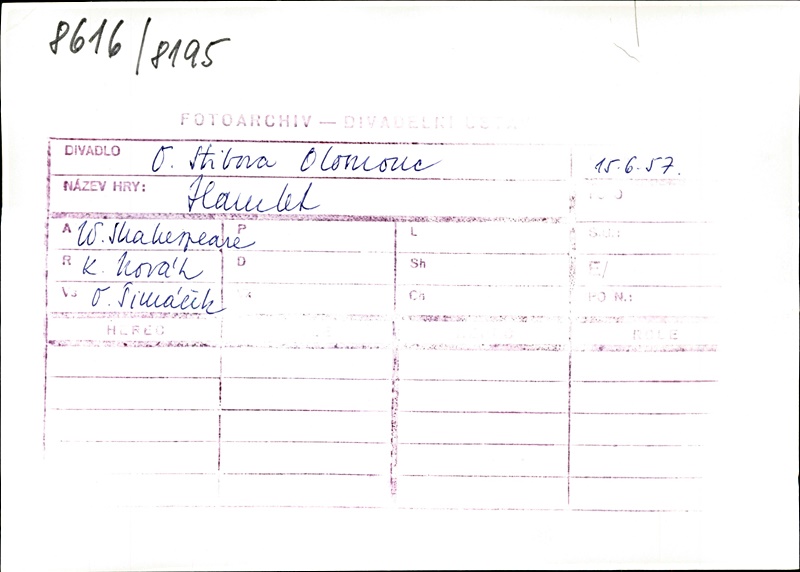 8616/8195
FOTOARCHIV — DIVADELNÍ ÚSTAV
DIVADLO O. Stibora Olomouc 15.6.57.
NÁZEV HRY: Hamlet FOTO
A W. Shakespeare P L
R K. Novák D Sh
O. Šimáček Ch
HEREC ROLE